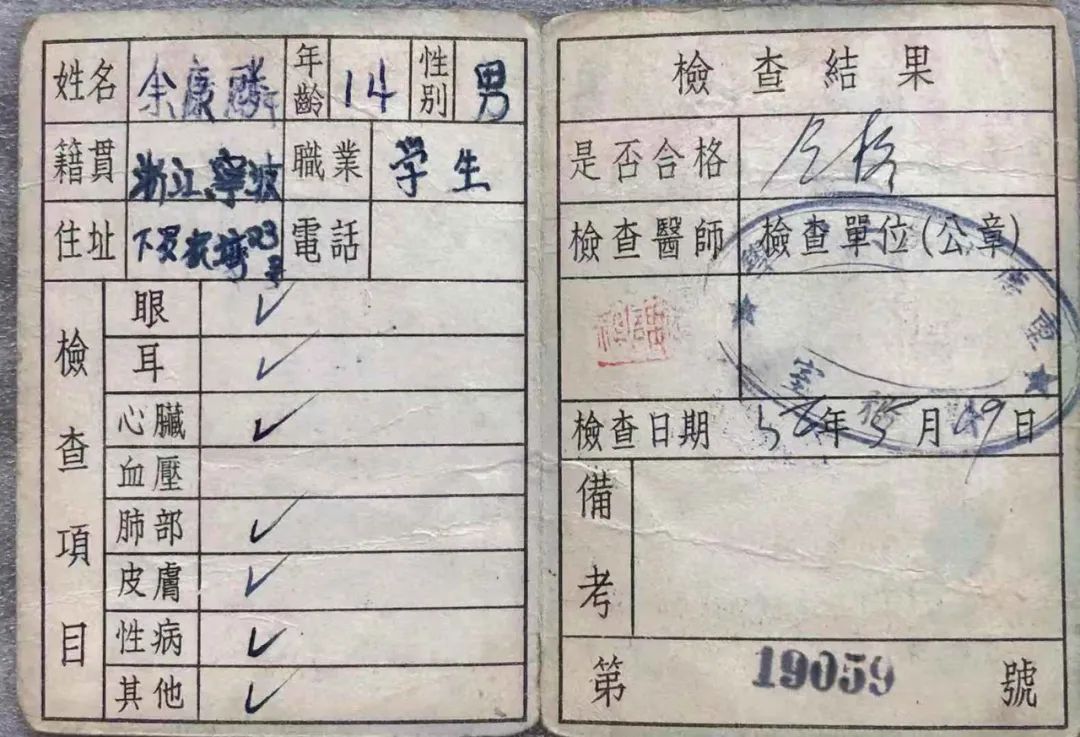 姓名 余康麟 年齡 14 性別 男
籍貫 浙江寧波 職業 学生
住址 電話
檢查項目
眼 ✓
耳 ✓
心臟 ✓
血壓
肺部 ✓
皮膚 ✓
性病 ✓
其他 ✓
檢查結果
是否合格 合格
檢查醫師 檢查單位(公章)
檢查日期 年5月19日
備考
第 19059 號